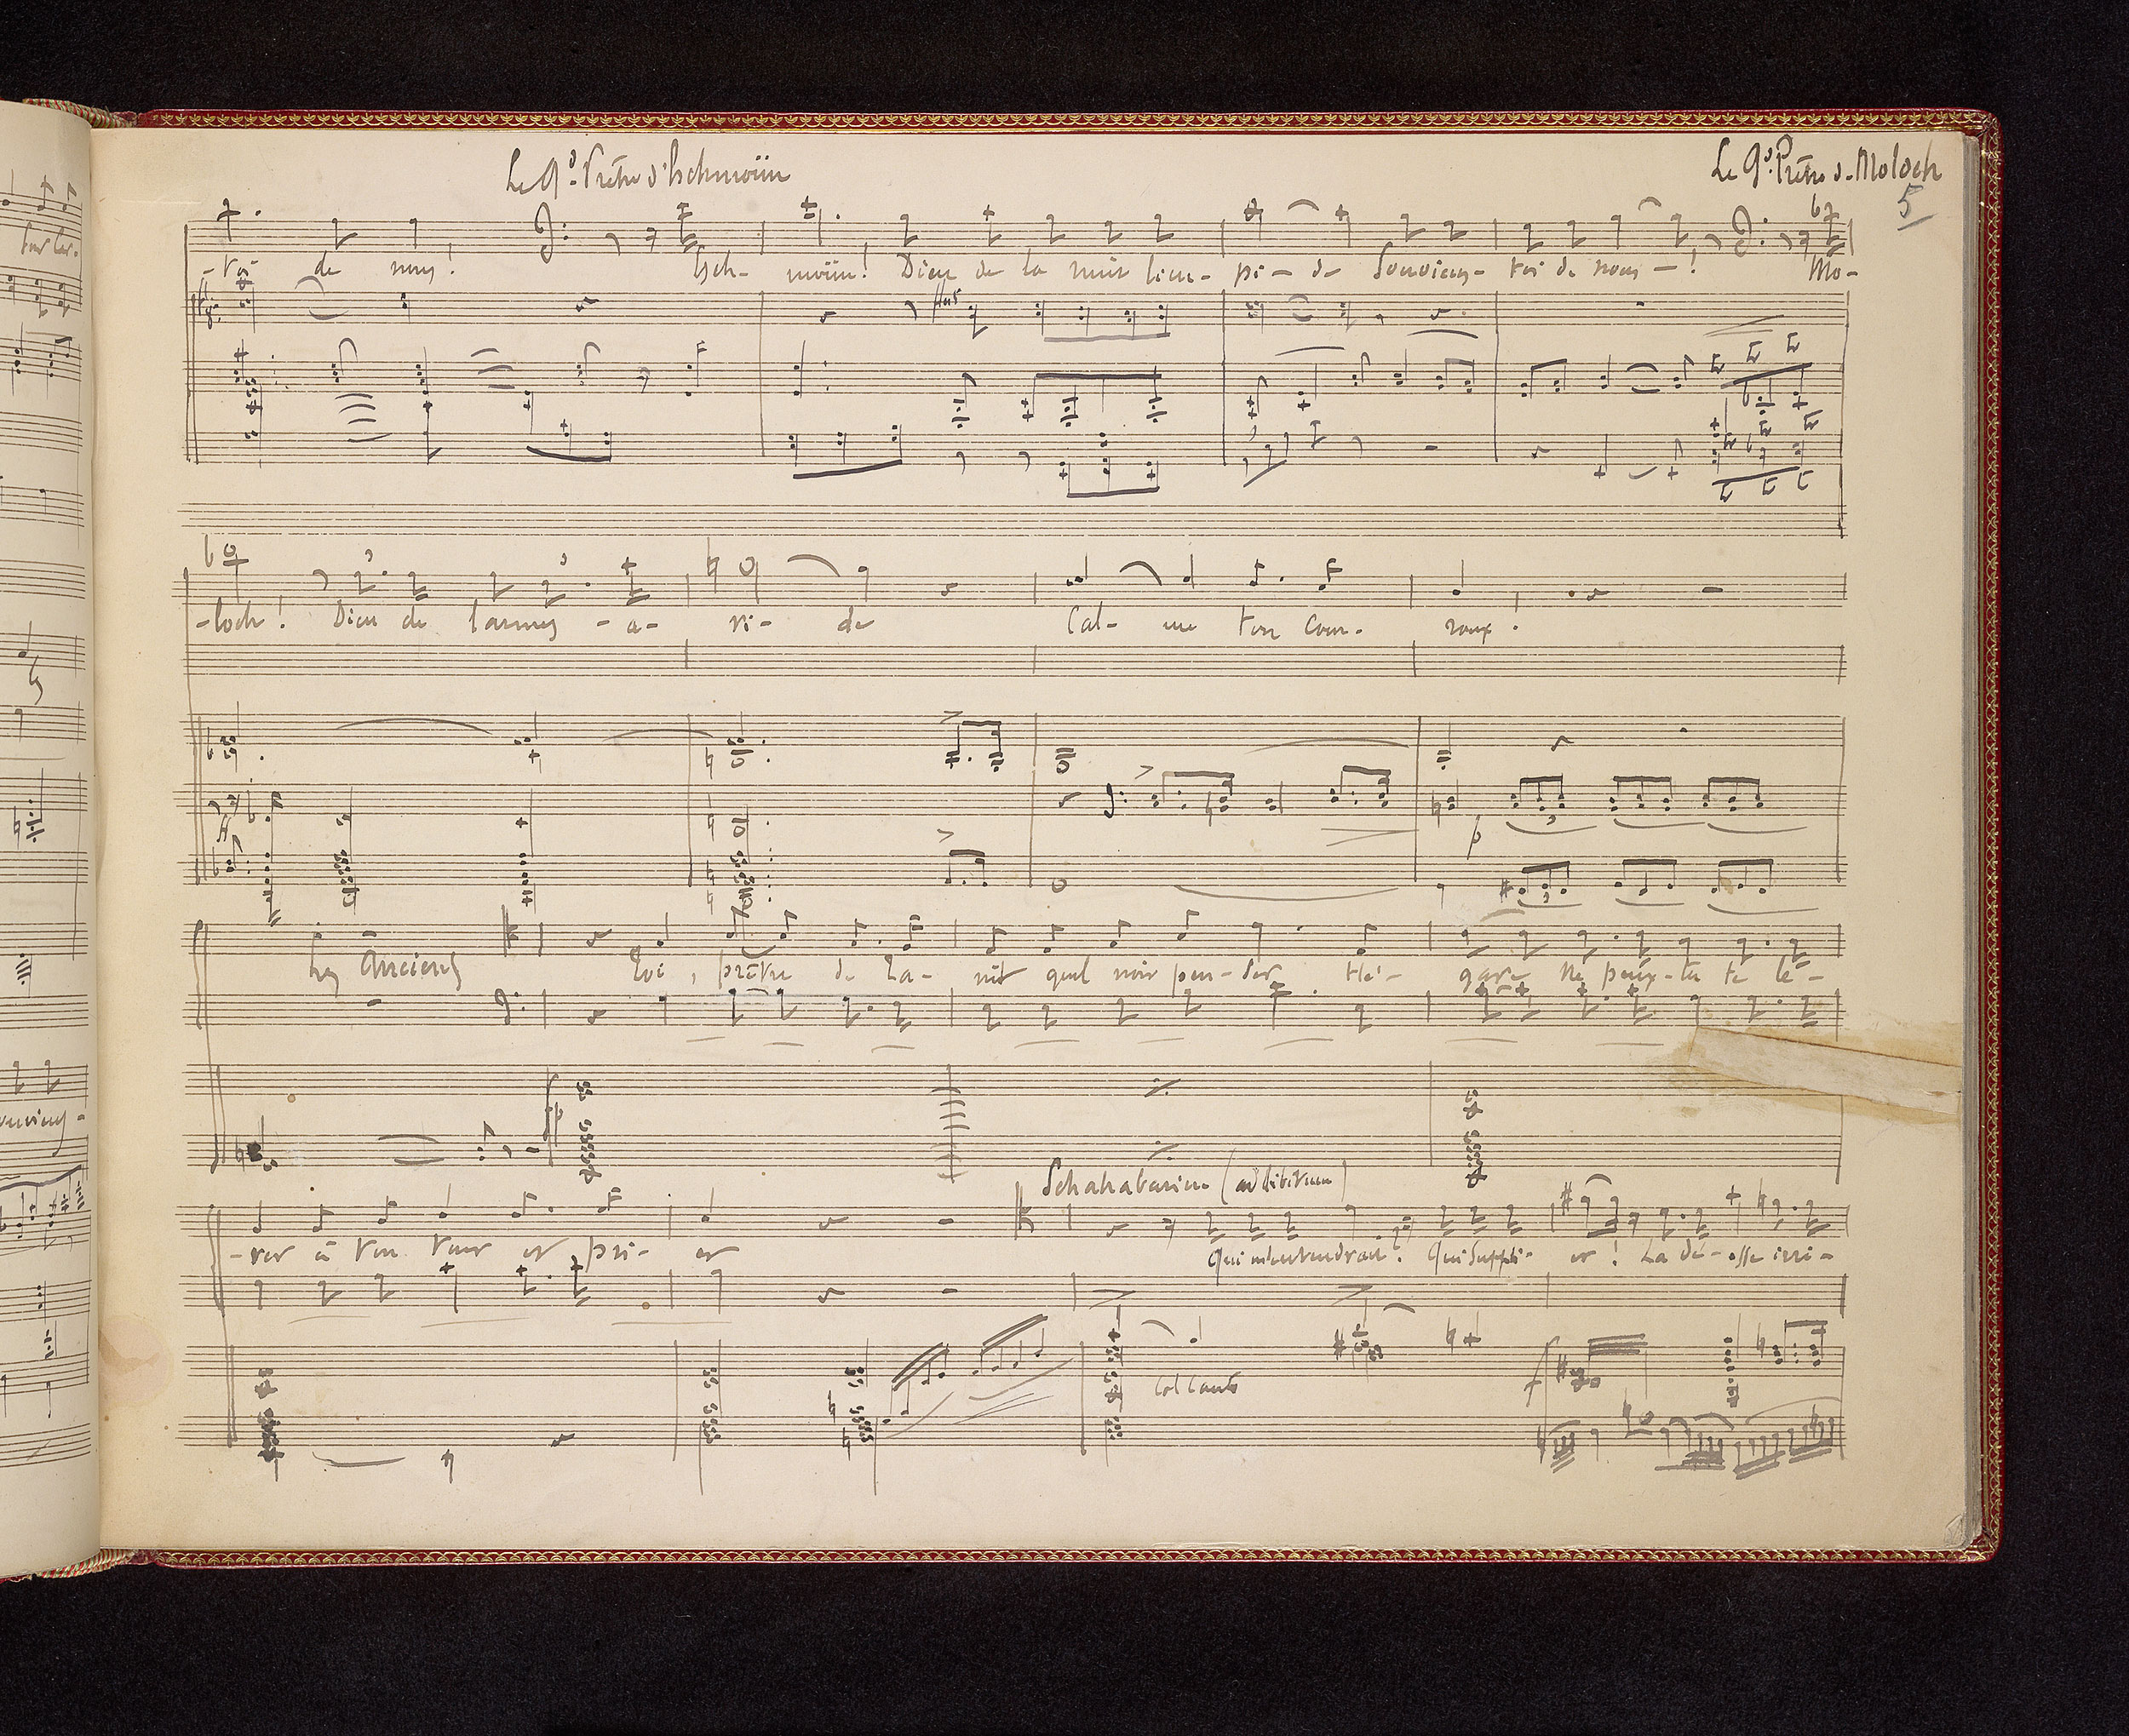 Le Gd. Prêtre d'Eschmoün
Le Gd. Prêtre de Moloch
5
-toi de nous! Esch- moün! Dieu de la nuit lim- pi- de Souviens- toi de nous -! Mo-
-loch! Dieu de larmes - a- ri- de Cal- me ton cour- roux!
Les Anciens
Toi, prêtre de Ta- nit quel noir pen- ser t'é- gare Ne peux- tu te le-
p
-ver à ton tour et pri- er
Schahabarim (ad libitum)
Qui m'entendrait! Qui suppli- er! La dé- esse irri-
col canto
f
ouviens-